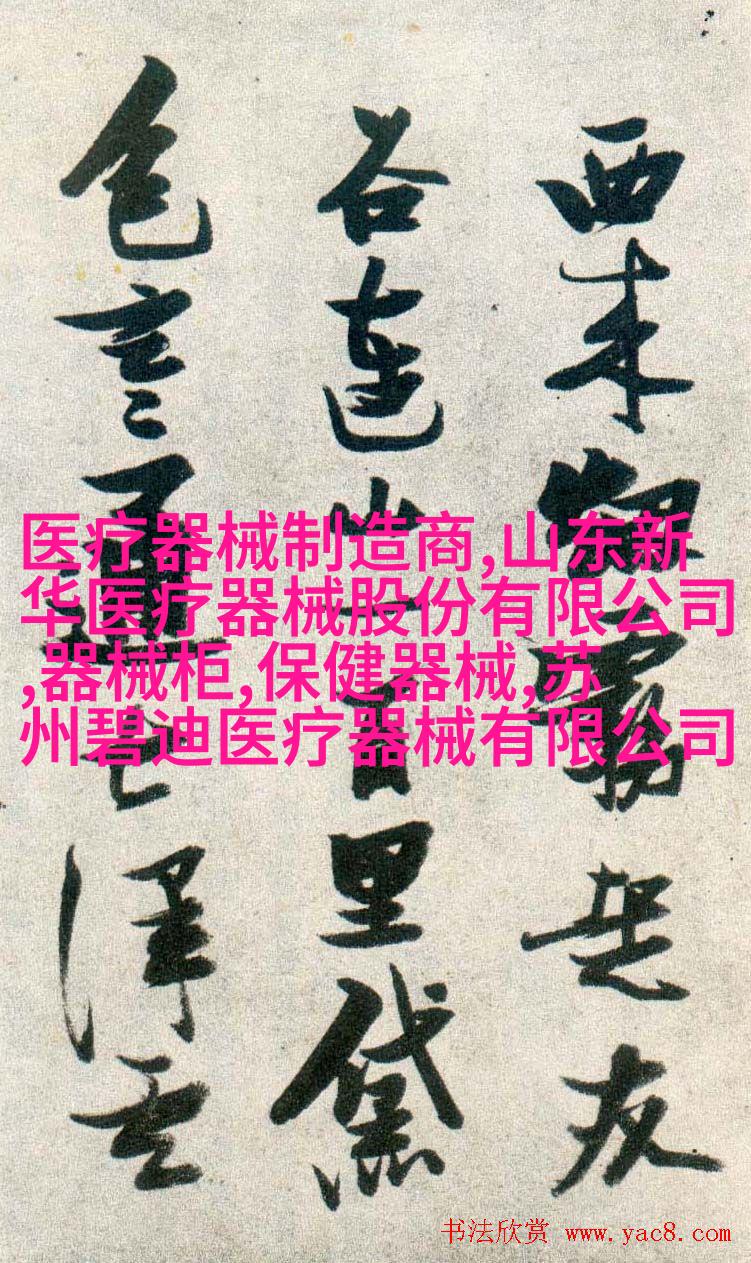 西来烟霧
谷連山一百里黛
色言通
医疗器械制造商,山东新
华医疗器械股份有限公司
,器械柜,保健器械,苏
州碧迪医疗器械有限公司
书法欣赏 www.yac8.com